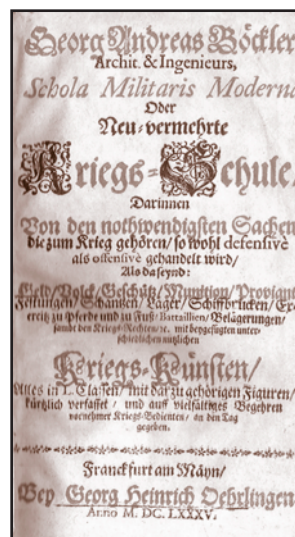 Georg Andreas Böckler
Archit. & Ingenieurs,
Schola Militaris Moderna
Oder
Neu-vermehrte
Kriegs-Schule/
Darinnen
Von den nothwendigsten Sachen
die zum Krieg gehören/ so wohl defensivè
als offensivè gehandelt wird/
Als da seynd:
Geld/ Volck/ Geschütz/ Munition/ Proviant
Festungen/ Schantzen/ Läger/ Schiffbrücken/ Ex-
ereitz zu Pferde und zu Fuß/ Battaillien/ Belägerungen/
sambt den Kriegs-Rechten/ mit beygefügten unter-
schiedlichen nützlichen
Kriegs-Künsten/
Alles in Classen/ mit darzu gehörigen Figuren/
kürtzlich verfasset/ und auff vielfältiges Begehren
vornehmer Kriegs-Bedienten/ an den Tag
gegeben.
Franckfurt am Mäyn/
Bey Georg Heinrich Oehrlingen
Anno M. DC. LXXXV.